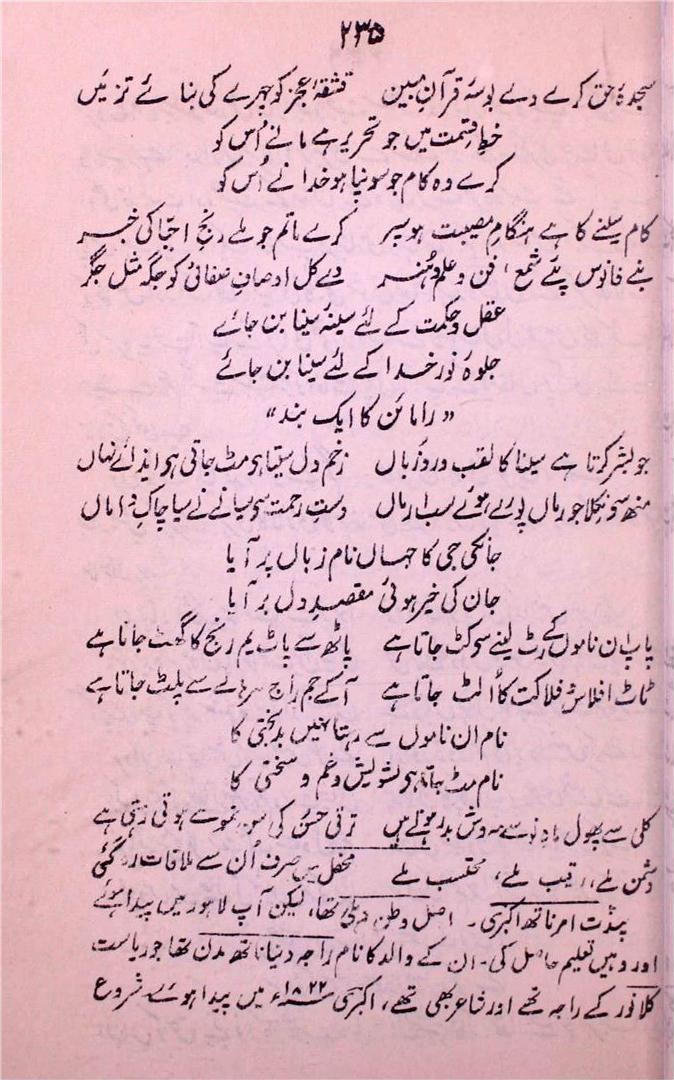 ۲۳۵
سجدۂ حق کرے دے بوسۂ قرآن مبین قشقۂ عجز کو چہرے کی بنائے تزئیں
خطِ قسمت میں جو تحریر ہے مانے اُس کو
کرے وہ کام جو سونپا ہو خدا نے اُس کو
کام سلنے کا ہے ہنگامِ مصیبت ہو سپر کرے ماتم جو ملے رنجِ احبّا کی خبر
بنے فانوس پئے شمع فن و علم و ہنر دے کل اوصافِ صفائی کو جگہ مثل جگر
عقل و حکمت کے لئے سینہ سینا بن جائے
جلوۂ نور خدا کے لئے سینا بن جائے
"رامائن کا ایک بند"
جو بشر کرتا ہے سیتا کا لقب ورد زباں زخم دل سیتا ہو مٹ جاتی ہو ایذائے نہاں
منھ سو نکلا جو رماں پورے ہوئے سب ارماں دستِ رحمت سو سیا نے نے سیا چاکِ داماں
جانکی جی کا جہاں نام زباں پر آیا
جان کی خیر ہوئی مقصدِ دل بر آیا
پاپ ان ناموں کے رٹ لینے سو کٹ جاتا ہے پاٹھ سے پاٹ یم رنج کا گھٹ جاتا ہے
ٹاٹ افلاس و فلاکت کا اُلٹ جاتا ہے آکے جم راج سرہانے سے پلٹ جاتا ہے
نام ان ناموں سے رہتا نہیں بدبختی کا
نام مٹ جاتا ہو تشویش و غم و سختی کا
کلی سے پھول ماہِ نو سے مہ وش بدر ہوتے ہیں ترقی حسن کی سو بہ نمو سے ہوتی رہتی ہے
دشمن ملے، رقیب ملے، محتسب ملے محفل میں صرف اُن سے ملاقات رہ گئی
پنڈت امرناتھ اکبری۔ اصل وطن دہلی تھا، لیکن آپ لاہور میں پیدا ہوئے
اور وہیں تعلیم حاصل کی۔ ان کے والد کا نام راجہ دینا ناتھ مدن تھا جو ریاست
کلانور کے راجہ تھے اور شاعر بھی تھے، اکبری ۱۸۲۲ء میں پیدا ہوئے شروع